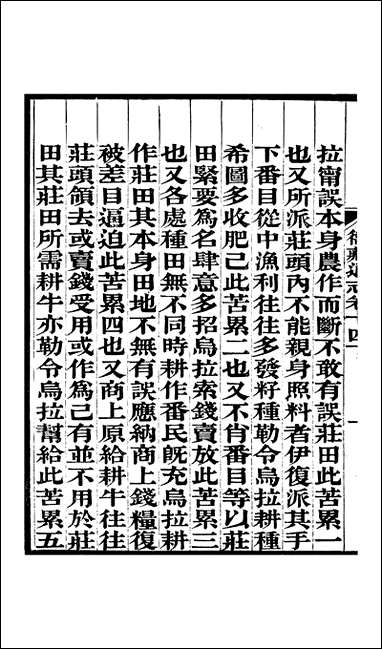 衛藏通志卷十四
拉甯誤本身農作而斷不敢有誤莊田此苦累一
也又所派莊頭內不能親身照料者伊復派其手
下番目從中漁利往往多發籽種勒令烏拉耕種
希圖多收肥己此苦累二也又不肖番目等以莊
田緊要爲名肆意多招烏拉索錢賣放此苦累三
也又各處種田無不同時耕作番民旣充烏拉耕
作莊田其本身田地不無有誤應納商上錢糧復
被差目逼迫此苦累四也又商上原給耕牛往往
莊頭領去或賣錢受用或作爲己有並不用於莊
田其莊田所需耕牛亦勒令烏拉幫給此苦累五